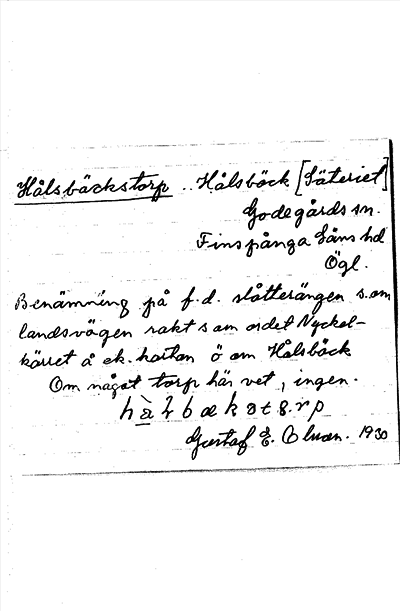 Hålsbäckstorp .. Hålsböck [Säteriet]
Godegårds sn.
Finspånga läns hd
Ögl.
Benämning på f.d. slåtterängen s.om
landsvägen rakt s om ordet Nyckel-
kärret å ek. kartan ö om Hålsböck
Om något torp här vet, ingen.
Gustaf E. 1930